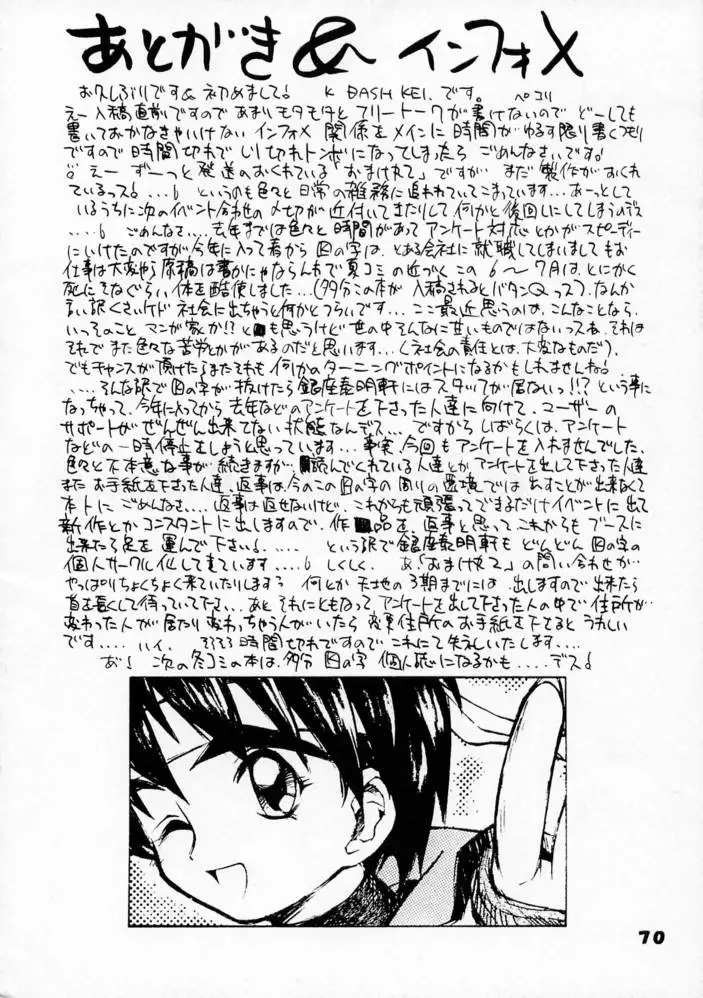 あとがき & インフォメ
お久しぶりです&初めまして! K DASH KEI. です。 ペコリ
えー入稿直前ですので あまりモタモタと フリートークが書けないので どーしても
書いておかなきゃいけない インフォメ 関係をメインに 時間が ゆるす限り書くつもり
ですので 時間切れで しり切れトンボになってしまったら ごめんなさいです!
えー ずーっと発送のおくれている「おまけ丸て」ですが まだ 製作がおくれ
ているっス! というのも色々と 日常の雑務に追われていてこまっています...あーっとして
いるうちに次のイベント合わせの〆切が 近付いてきたりして 何かと 後回しにしてしまうのデス
....6 ごめんなさ...去年までは色々と 時間があって アンケート対応とかが スピーディー
にいけたのですが今年に入って 図の字は、とある会社に就職してしまいまして もお
仕事は大変やら 原稿は書かにゃならんわで 夏コミの近づくこの 6〜7月は、とにかく
死にそなぐらい 体を酷使しました...(多分この本が 入稿されるとバタンQっス)。なんか
言い訳くさいケド 社会に出ちゃうと何かとつらいです... ここ最近思うのは、こんなことなら、
いっそのこと マンガ家か!? とも思うけど 世の中そんなに甘いものではないっスね、それは
それで また色々な苦労とかが あるのだと思います...(社会の責任とは、大変なものだ)。
でもチャンスが 頂けたらまたそれも 何かのターニングポイントになるかもしれませんね!
....そんな訳で 図の字が 抜けたら 銀座泰明軒には スタッフが居ないっ!!? という事に
なっちゃって、今年に入ってから 去年などのアンケートを下さった人達に向けて、ユーザーの
サポートが ぜんぜん出来てない 状態なんデス... ですから しばらくは、アンケート
などの 一時停止をしようと思っています...事実、今回も アンケートを入れませんでした、
色々と不本意な事が 続きますが、読んでくれている人達とか アンケートを出して下さった人達
また お手紙を下さった人達、返事は、今のこの図の字の 周りの環境では 出すことが 出来なくて
本トに ごめんなさ... 返事は返せないけど、これからも頑張ってできるだけイベントに出て
新作とか コンスタントに出しますので、作品を、返事と思って これからも ブースに
出来たら足を運んで下さい!..... という訳で銀座泰明軒も どんどん 図の字の
個人サークル化して来ています....6 しくしく、 あ、「おまけ丸て」の問い合わせが..
やっぱりちょくちょく来ていたりします? 何とか 天地の3期までには 出しますので出来たら
首を長くして待っていて下さ... あと それにともなって、アンケートを出して下さった人の中で 住所が
変わった人が 居たり 変わっちゃう人がいたら 変更住所のお手紙を下さると うれしい
です..... ハイ、 そろそろ時間切れですので これにて失礼いたします....
お! 次の冬コミの本は、多分 図の字 個人誌になるかも....デス!
70